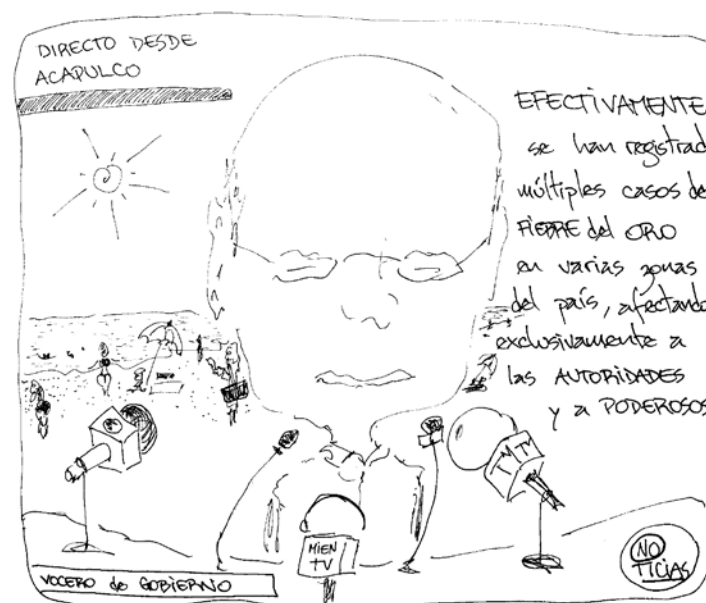 DIRECTO DESDE
ACAPULCO
EFECTIVAMENTE
se han registrad
múltiples casos de
FIEBRE del ORO
en varias zonas
del país, afectando
exclusivamente a
las AUTORIDADES
y a PODEROSOS
TV
MIEN
TV
VOCERO de GOBIERNO
NO
TICIAS